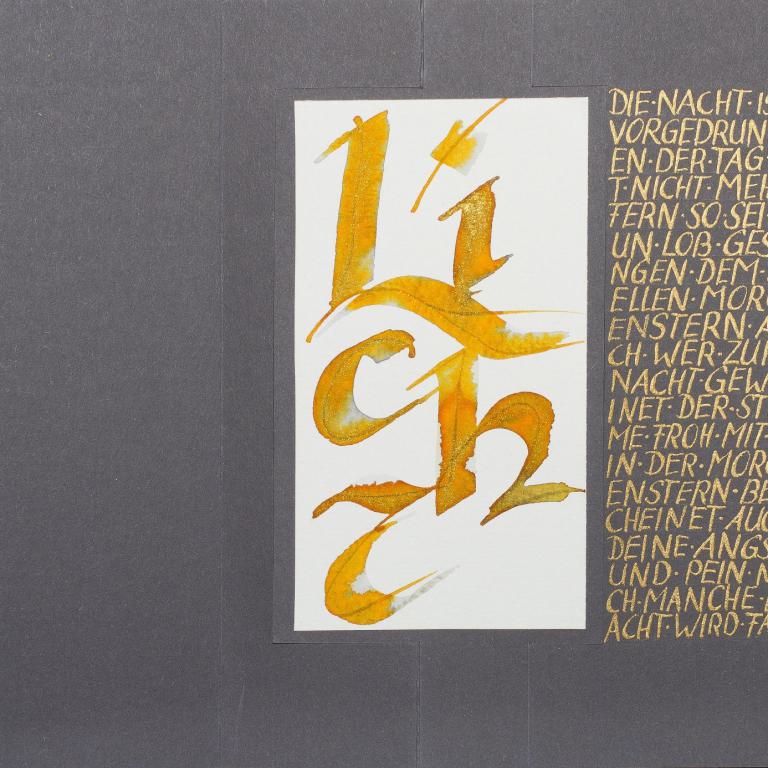 licht
DIE·NACHT·IS
VORGEDRUN
EN·DER·TAG·
T·NICHT·MEH
FERN·SO·SEI·
UN·LOB·GES
NGEN·DEM·
ELLEN·MORG
ENSTERN·A
CH·WER·ZUR
NACHT·GEW
INET·DER·ST
ME·FROH·MIT·
IN·DER·MORG
ENSTERN·BE
CHEINET·AUC
DEINE·ANGS
UND·PEIN·N
CH·MANCHE·
ACHT·WIRD·FA